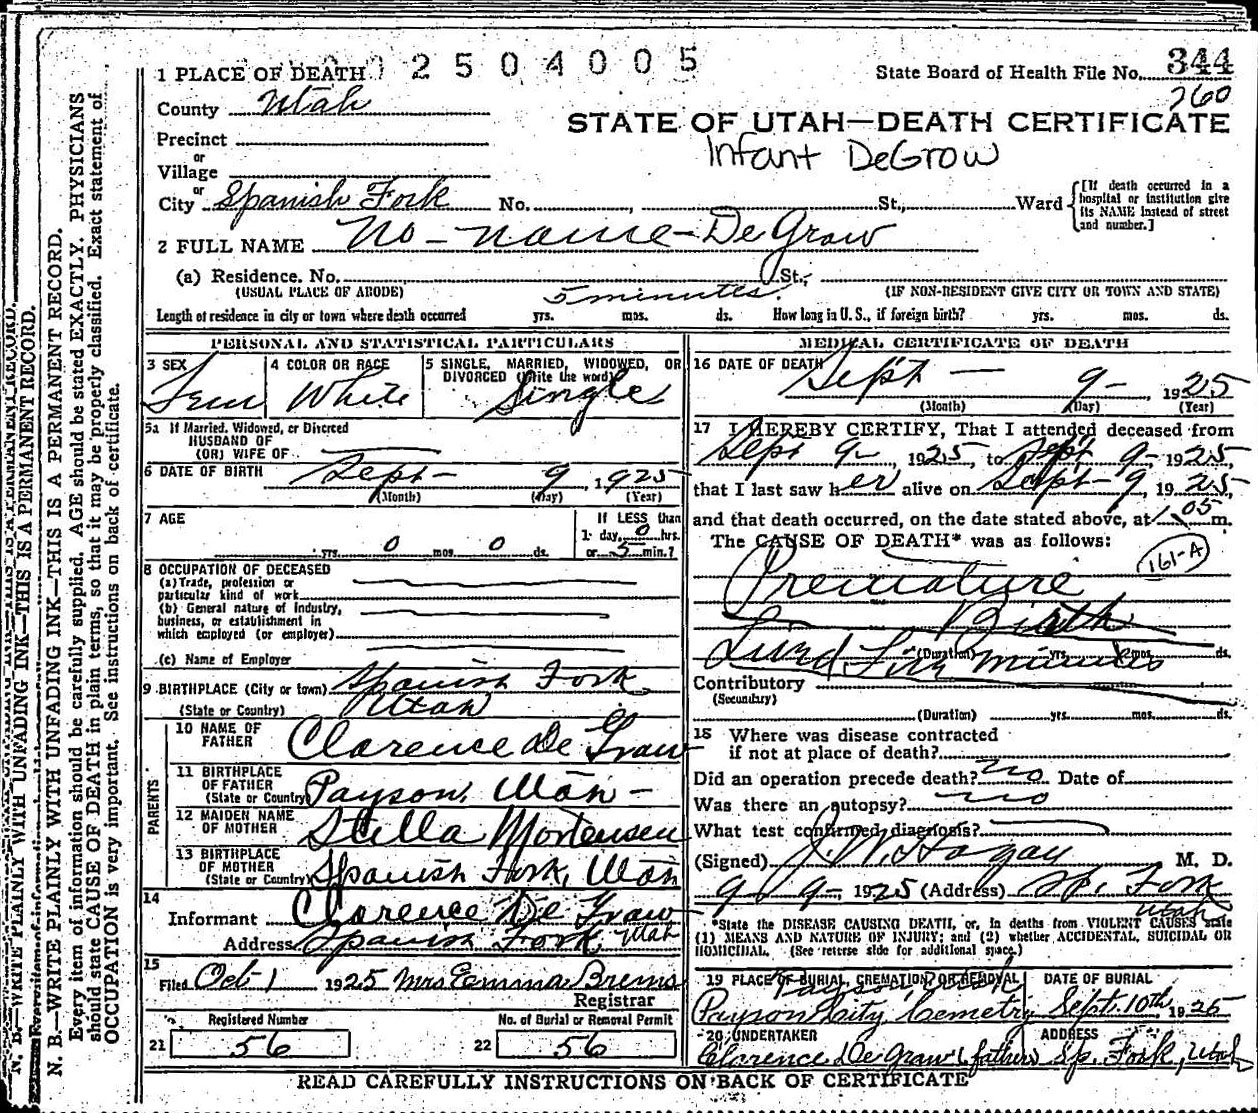 1 PLACE OF DEATH 2 5 0 4 0 0 5 State Board of Health File No. 344
260
County Utah
STATE OF UTAH—DEATH CERTIFICATE
Precinct
Infant DeGrow
or
Village
or
City Spanish Fork No. , St., Ward {[If death occurred in a hospital or institution give its NAME instead of street and number.]
2 FULL NAME No-name-DeGraw
(a) Residence. No. St.,
(USUAL PLACE OF ABODE) (IF NON-RESIDENT GIVE CITY OR TOWN AND STATE)
5 minutes.
Length of residence in city or town where death occurred yrs. mos. ds. How long in U. S., if foreign birth? yrs. mos. ds.
PERSONAL AND STATISTICAL PARTICULARS
3 SEX
Fem
4 COLOR OR RACE
White
5 SINGLE, MARRIED, WIDOWED, OR
DIVORCED (Write the word)
Single
5a If Married, Widowed, or Divorced
HUSBAND OF
(OR) WIFE OF
6 DATE OF BIRTH Sept- 9 1925
(Month) (Day) (Year)
7 AGE
yrs. 0 mos. 0 ds.
If LESS than
1 day, 0 hrs.
or 5 min.?
8 OCCUPATION OF DECEASED
(a) Trade, profession or
particular kind of work
(b) General nature of industry,
business, or establishment in
which employed (or employer)
(c) Name of Employer
9 BIRTHPLACE (City or town) Spanish Fork
(State or Country) Utah
PARENTS
10 NAME OF
FATHER Clarence De Graw
11 BIRTHPLACE
OF FATHER
(State or Country) Payson, Utah-
12 MAIDEN NAME
OF MOTHER Stella Mortensen
13 BIRTHPLACE
OF MOTHER
(State or Country) Spanish Fork, Utah
14
Informant Clarence De Graw
Address Spanish Fork Utah
15
Filed Oct 1 1925 Mrs Emma Brems
Registrar
Registered Number No. of Burial or Removal Permit
21 56 22 56
MEDICAL CERTIFICATE OF DEATH
16 DATE OF DEATH Sept- 9- 1925
(Month) (Day) (Year)
17 I HEREBY CERTIFY, That I attended deceased from
Sept 9- 1925, to Sept 9- 1925,
that I last saw her alive on Sept-9, 1925,
and that death occurred, on the date stated above, at 1 05 m.
The CAUSE OF DEATH* was as follows:
161-A
Premature
Birth
Lived Five minutes
(Duration) yrs. mos. ds.
Contributory
(Secondary)
(Duration) yrs. mos. ds.
18 Where was disease contracted
if not at place of death?
Did an operation precede death? no Date of
Was there an autopsy? no
What test confirmed diagnosis?
(Signed) J. W. Hagan M. D.
9 9- 1925 (Address) Sp. Fork
Utah
*State the DISEASE CAUSING DEATH, or, in deaths from VIOLENT CAUSES state
(1) MEANS AND NATURE OF INJURY; and (2) whether ACCIDENTAL, SUICIDAL OR
HOMICIDAL. (See reverse side for additional space.)
19 PLACE OF BURIAL, CREMATION OR REMOVAL DATE OF BURIAL
Payson City Cemetry Sept. 10th, 1925
20 UNDERTAKER ADDRESS
Clarence De Graw father Sp. Fork, Utah
READ CAREFULLY INSTRUCTIONS ON BACK OF CERTIFICATE
N. B.—WRITE PLAINLY WITH UNFADING INK—THIS IS A PERMANENT RECORD.
Every item of information should be carefully supplied. AGE should be stated EXACTLY. PHYSICIANS
should state CAUSE OF DEATH in plain terms, so that it may be properly classified. Exact statement of
OCCUPATION is very important. See instructions on back of certificate.
N. B.—WRITE PLAINLY WITH UNFADING INK—THIS IS A PERMANENT RECORD.